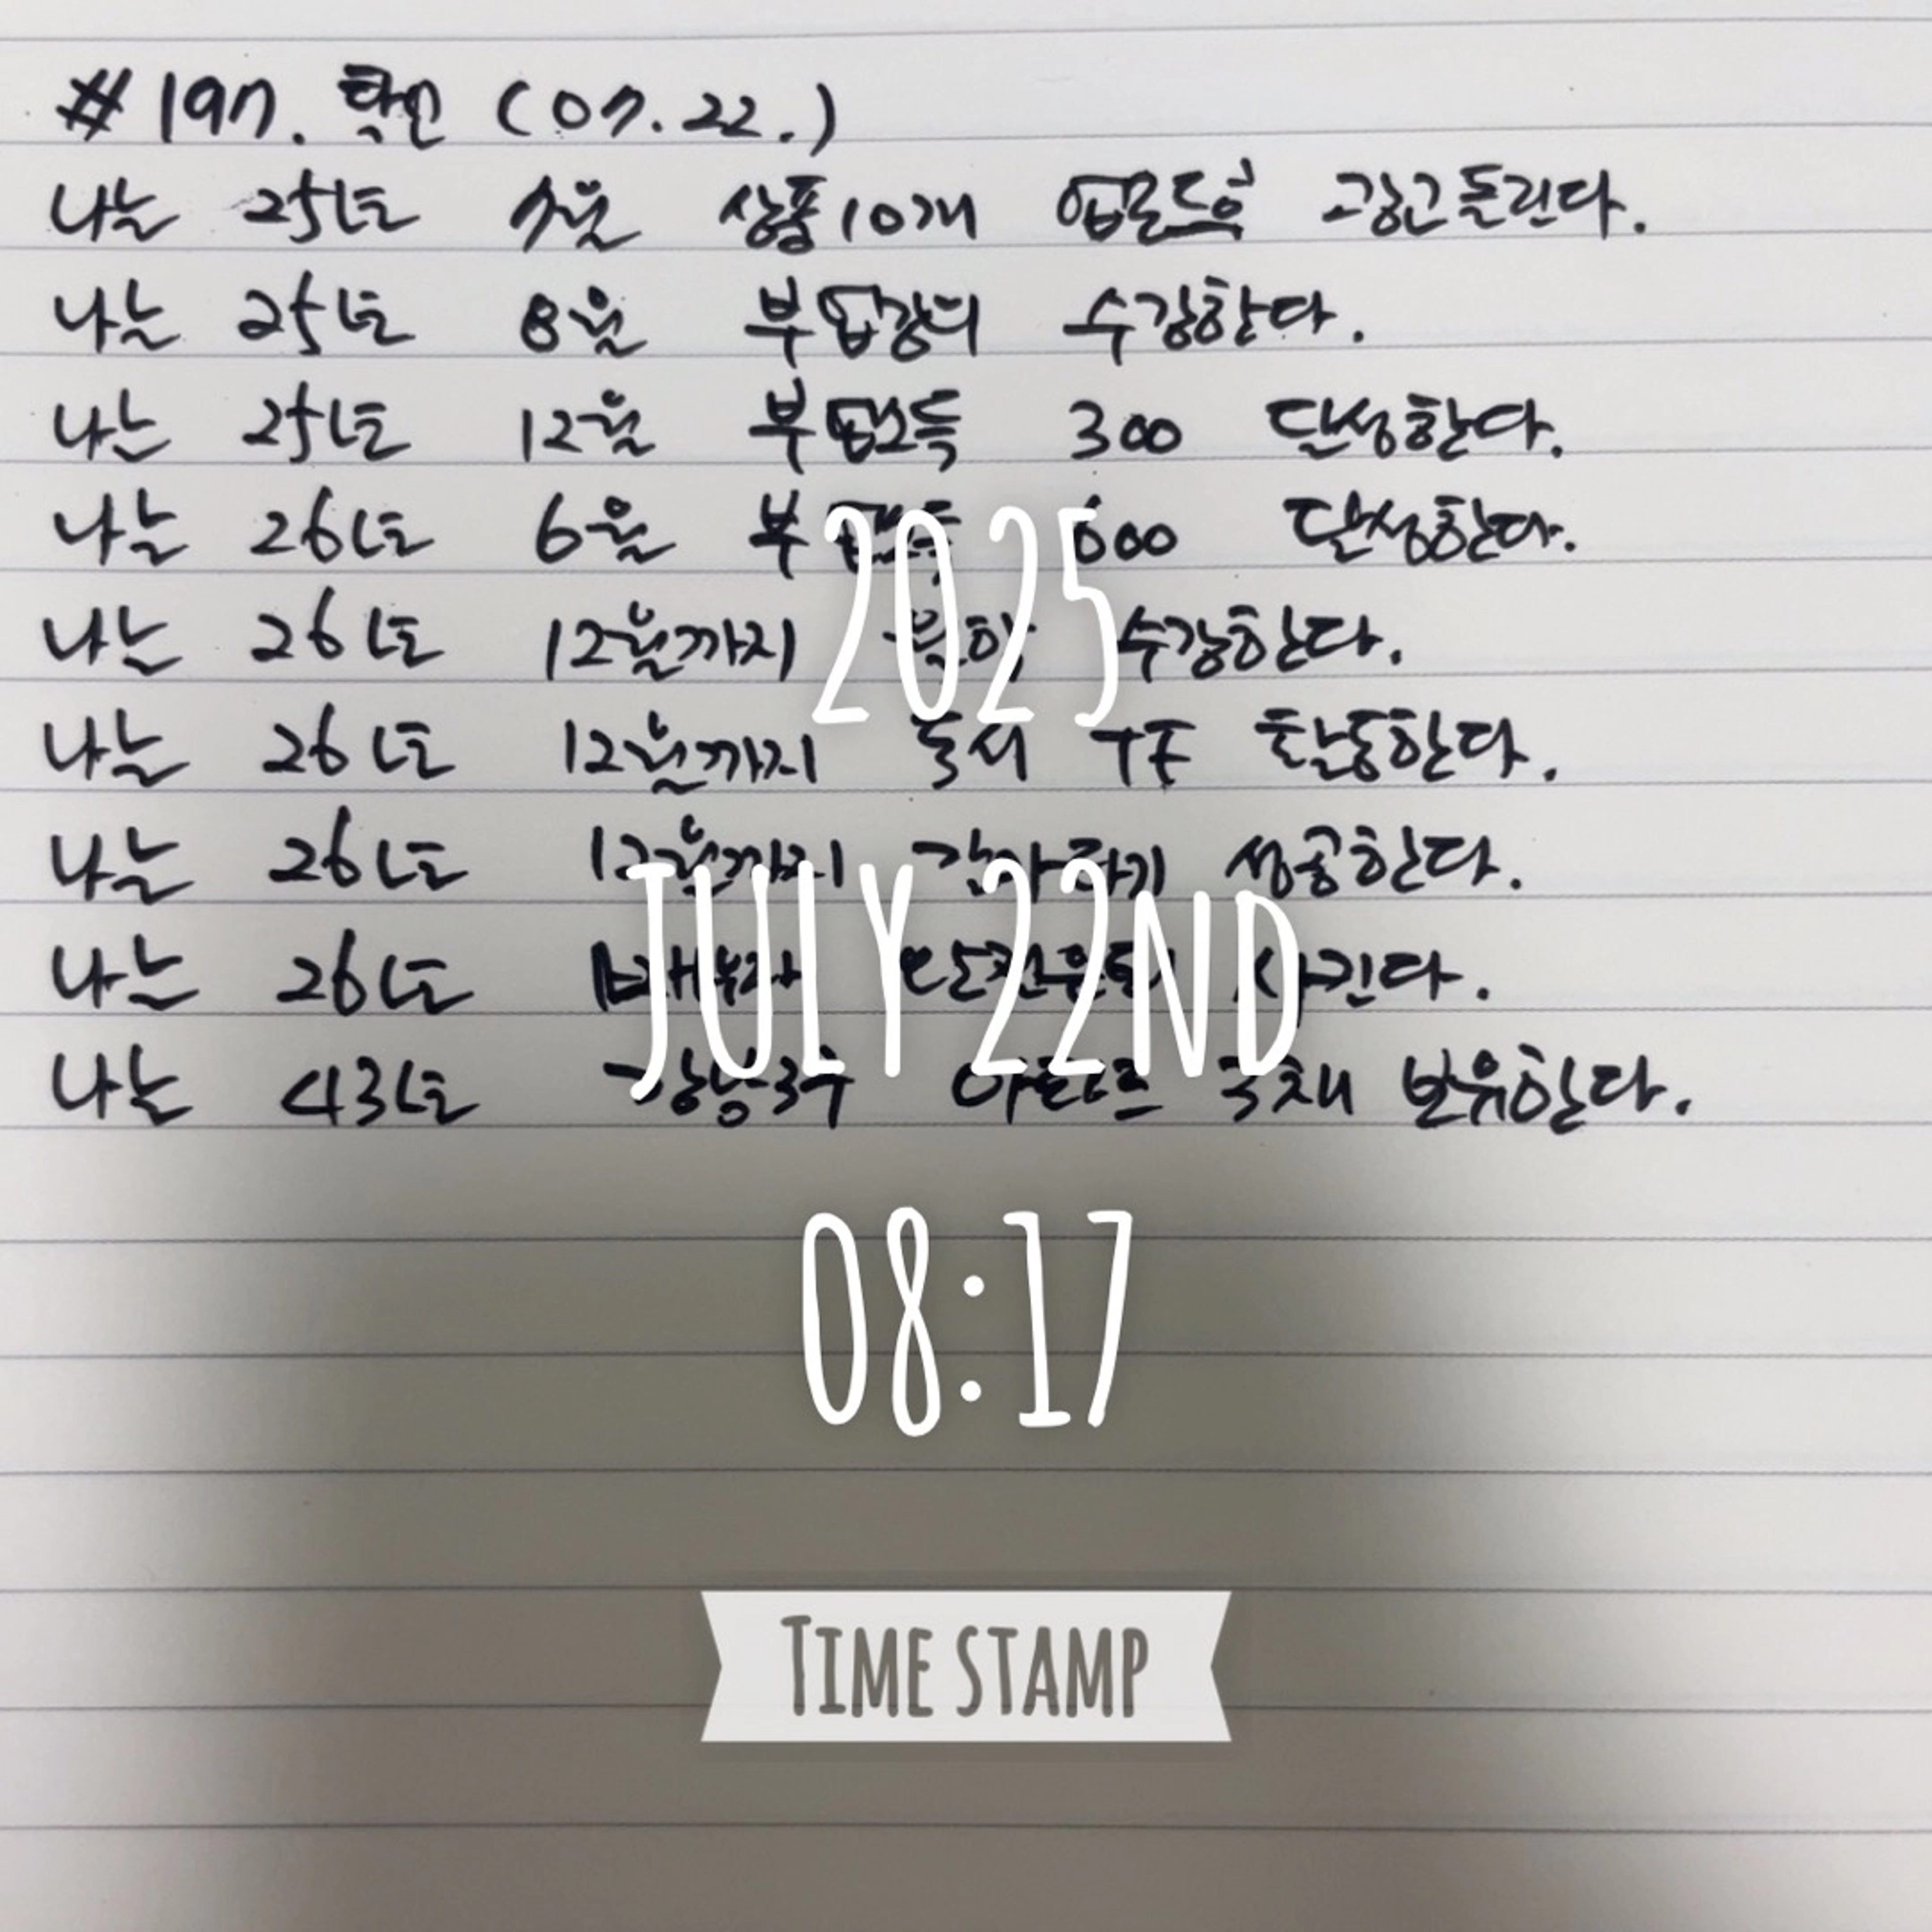 #197. 확언 (07.22.)
나는 25년 7월 상품10개 업로드후 광고돌린다.
나는 25년 8월 부업강의 수강한다.
나는 25년 12월 부업소득 300 달성한다.
나는 26년 6월 부업소득 600 달성한다.
나는 26년 12월까지 수강한다.
나는 26년 12월까지 독서 TF 활동한다.
나는 26년 12월까지 갈아타기 성공한다.
나는 26년 사귄다.
나는 43년 강남3구 아파트 3채 보유한다.
2025
JULY 22ND
08:17
TIME STAMP